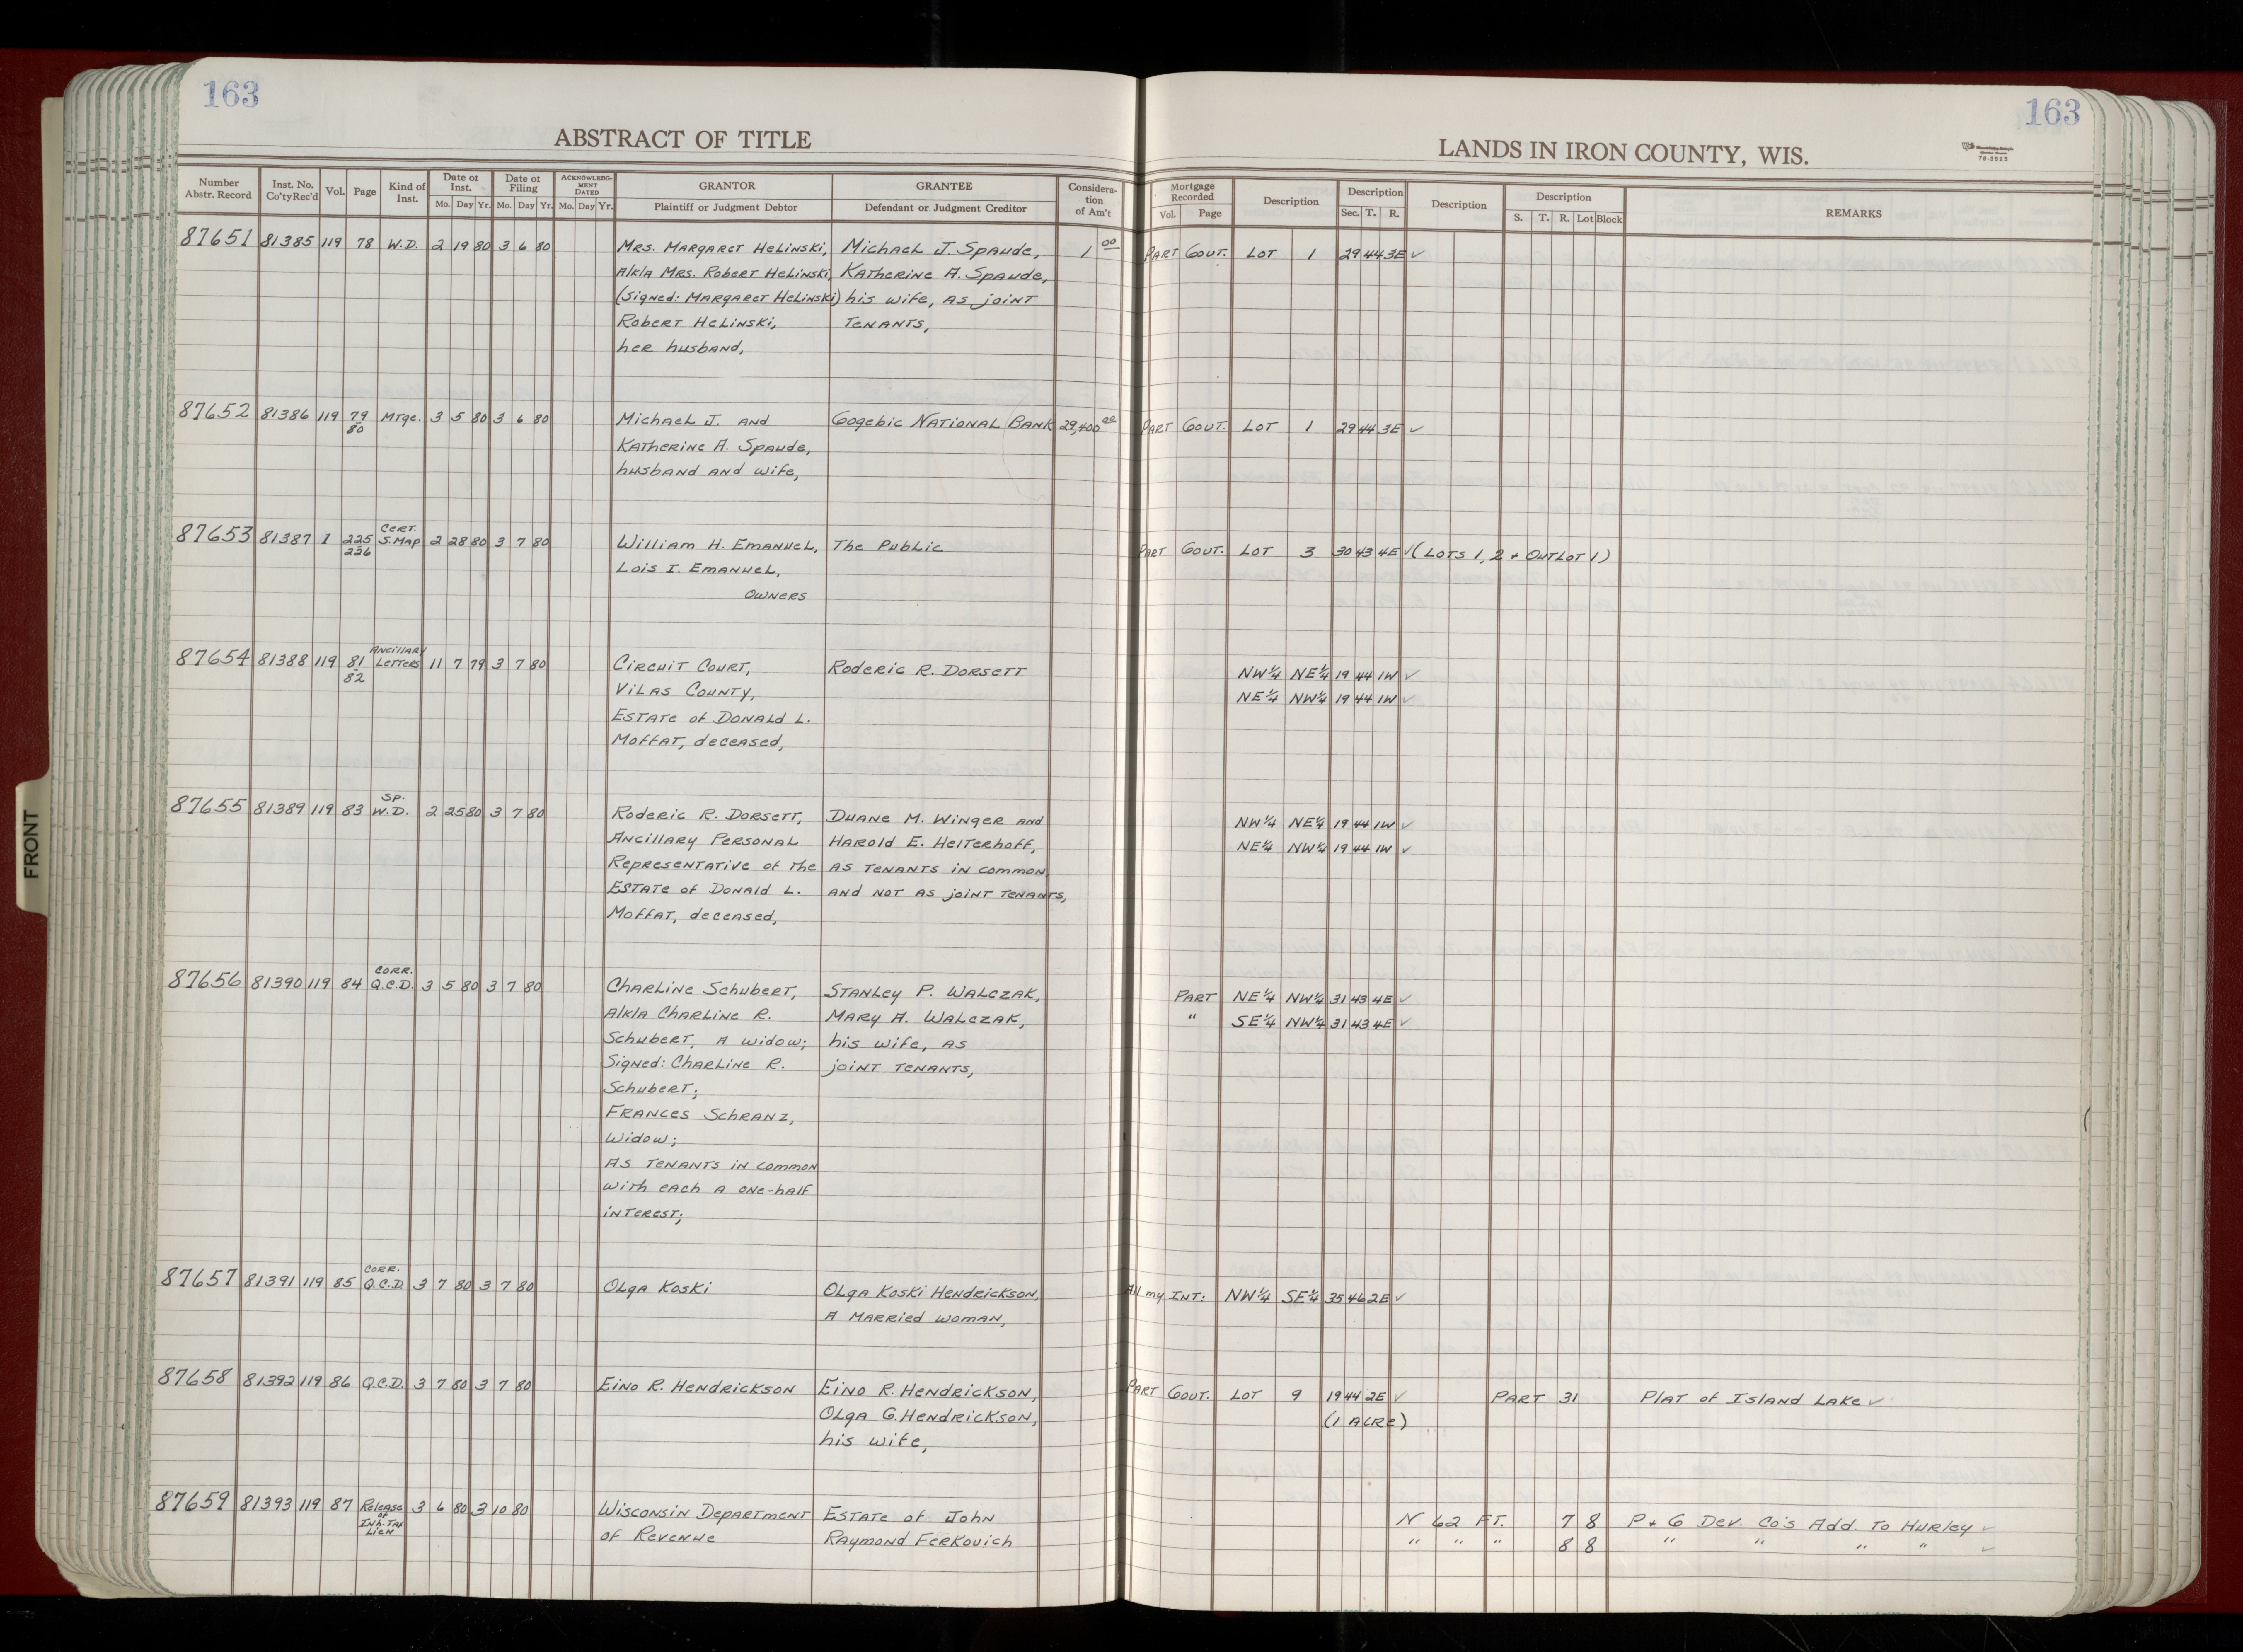 163
163
ABSTRACT OF TITLE
LANDS IN IRON COUNTY, WIS.
78-3525
Number Abstr. Record | Inst. No. Co'ty Rec'd | Vol. | Page | Kind of Inst. | Date of Inst. Mo. Day Yr. | Date of Filing Mo. Day Yr. | ACKNOWLEDGMENT DATED Mo. Day Yr. | GRANTOR Plaintiff or Judgment Debtor | GRANTEE Defendant or Judgment Creditor | Consideration of Am't | Mortgage Recorded Vol. Page | Description | Description Sec. T. R. | Description | Description S. T. R. Lot Block | REMARKS
87651 81385 119 78 W.D. 2 19 80 3 6 80 Mrs. Margaret Helinski, Michael J. Spaude, 1 00 Part Gout. Lot 1 29 44 3E ✓
A/k/a Mrs. Robert Helinski, Katherine A. Spaude,
(Signed: Margaret Helinski) his wife, as joint
Robert Helinski, tenants,
her husband,
87652 81386 119 79 80 Mtge. 3 5 80 3 6 80 Michael J. and Gogebic National Bank 29,400 00 Part Gout. Lot 1 29 44 3E ✓
Katherine A. Spaude,
husband and wife,
87653 81387 1 225 226 Cert. S. Map 2 28 80 3 7 80 William H. Emanuel, The Public Part Gout. Lot 3 30 43 4E ✓ (Lots 1, 2 + Outlot 1)
Lois I. Emanuel,
Owners
87654 81388 119 81 82 Ancillary Letters 11 7 79 3 7 80 Circuit Court, Roderic R. Dorsett NW¼ NE¼ 19 44 1W ✓
Vilas County, NE¼ NW¼ 19 44 1W ✓
Estate of Donald L.
Moffat, deceased,
87655 81389 119 83 Sp. W.D. 2 25 80 3 7 80 Roderic R. Dorsett, Duane M. Winger and NW¼ NE¼ 19 44 1W ✓
Ancillary Personal Harold E. Helterhoff, NE¼ NW¼ 19 44 1W ✓
Representative of the as tenants in common,
Estate of Donald L. and not as joint tenants,
Moffat, deceased,
87656 81390 119 84 Corr. Q.C.D. 3 5 80 3 7 80 Charline Schubert, Stanley P. Walczak, Part NE¼ NW¼ 31 43 4E ✓
A/k/a Charline R. Mary A. Walczak, " SE¼ NW¼ 31 43 4E ✓
Schubert, a widow; his wife, as
Signed: Charline R. joint tenants,
Schubert;
Frances Schranz,
Widow;
As tenants in common
with each a one-half
interest;
87657 81391 119 85 Corr. Q.C.D. 3 7 80 3 7 80 Olga Koski Olga Koski Hendrickson, All my Int: NW¼ SE¼ 35 46 2E ✓
A married woman,
87658 81392 119 86 Q.C.D. 3 7 80 3 7 80 Eino R. Hendrickson Eino R. Hendrickson, Part Gout. Lot 9 19 44 2E ✓ Part 31 Plat of Island Lake ✓
Olga G. Hendrickson, (1 Acre)
his wife,
87659 81393 119 87 Release of Inh. Tax Lien 3 6 80 3 10 80 Wisconsin Department Estate of John N 62 Ft. 7 8 P + G Dev. Co's Add. To Hurley ✓
of Revenue Raymond Ferkovich " " " 8 8 " " " " ✓
FRONT